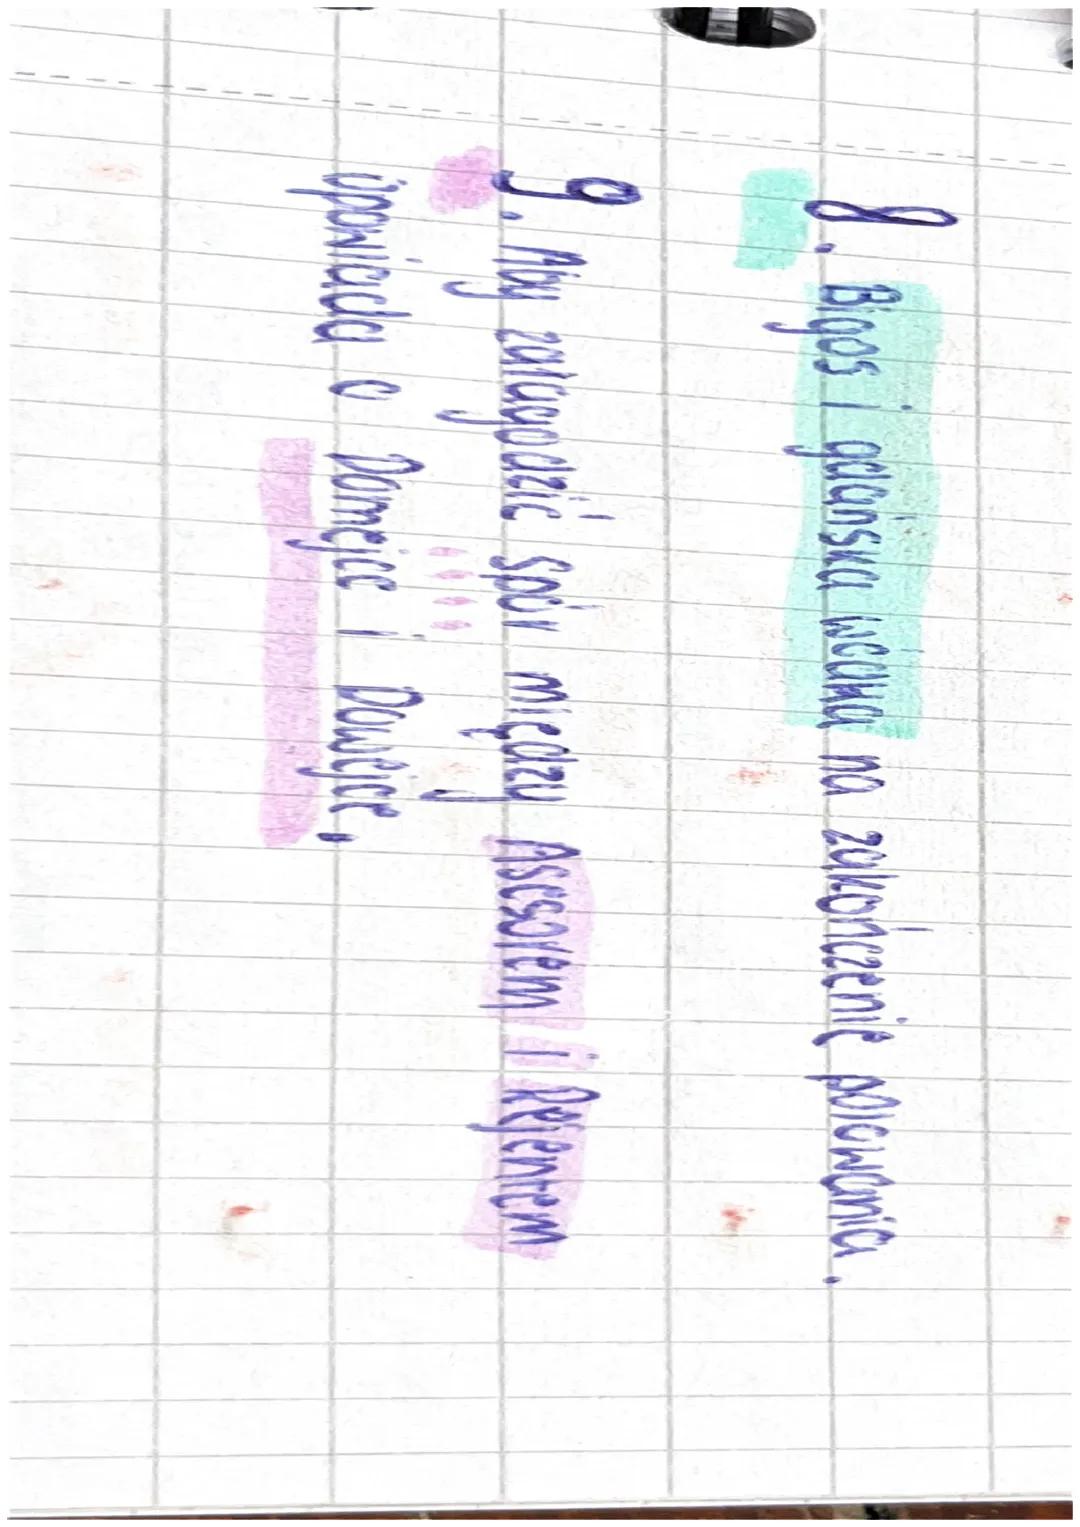 8. Bigos i gdańska wódka na zakończenie polowania.
9. Aby załagodzić spór między Asesorem i Rejentem
opowiada o Domejce i Dowejce.